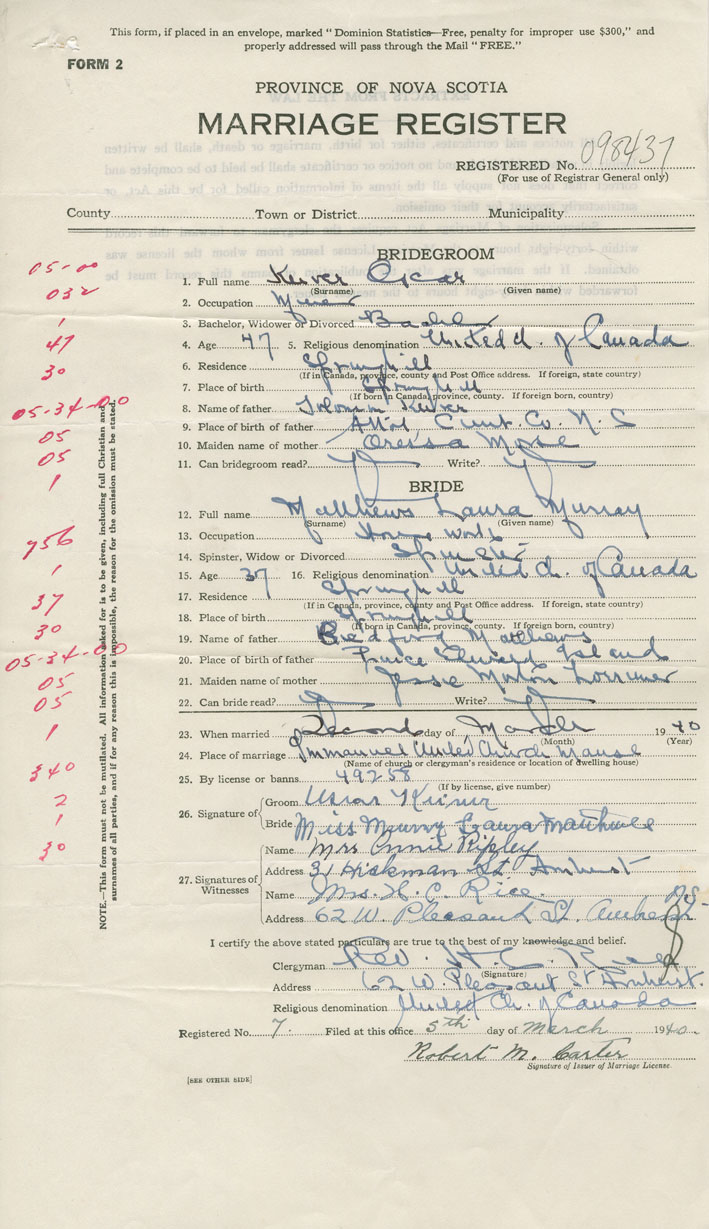 This form, if placed in an envelope, marked "Dominion Statistics—Free, penalty for improper use $300," and
properly addressed will pass through the Mail "FREE."
FORM 2
PROVINCE OF NOVA SCOTIA
MARRIAGE REGISTER
REGISTERED No. 098437
(For use of Registrar General only)
County Town or District Municipality
BRIDEGROOM
05-00
1. Full name Keiver Oscar
(Surname) (Given name)
032
2. Occupation Miner
1
3. Bachelor, Widower or Divorced Bachelor
47
4. Age 47 5. Religious denomination United Ch. of Canada
30
6. Residence Springhill
(If in Canada, province, county and Post Office address. If foreign, state country)
7. Place of birth Springhill
(If born in Canada, province, county. If foreign born, country)
05-34-00
8. Name of father Solomon Keiver
05
9. Place of birth of father Athol Cumb. Co. N. S
05
10. Maiden name of mother
1
11. Can bridegroom read? Write?
BRIDE
12. Full name Matthews Laura Murray
(Surname) (Given name)
756
13. Occupation House work
1
14. Spinster, Widow or Divorced Spinster
37
15. Age 37 16. Religious denomination United Ch. of Canada
30
17. Residence Springhill
(If in Canada, province, county and Post Office address. If foreign, state country)
18. Place of birth Springhill
(If born in Canada, province, county. If foreign born, country)
05-34-00
19. Name of father Bedford Matthews
05
20. Place of birth of father Prince Edward Island
05
21. Maiden name of mother Jessie Morton Lorrimer
22. Can bride read? Write?
1
23. When married Second day of March 1940
(Month) (Year)
24. Place of marriage Immanuel United Church Manse
(Name of church or clergyman's residence or location of dwelling house)
340
25. By license or banns 49258
(If by license, give number)
2
26. Signature of Groom Oscar Keiver
1
Bride Miss Murry Laura Matthews
30
27. Signatures of Witnesses
Name Mrs Annie Ripley
Address 31 Hickman St Amherst
Name Mrs. H. C. Rice.
Address 62 W. Pleasant St. Amherst NS
I certify the above stated particulars are true to the best of my knowledge and belief.
Clergyman Rev. H. C. Rice
(Signature)
Address 62 W. Pleasant St Amherst.
Religious denomination United Ch. of Canada
Registered No. 7. Filed at this office 5th day of March 1940
Robert M. Carter
Signature of Issuer of Marriage License.
[SEE OTHER SIDE]
NOTE.—This form must not be mutilated. All information asked for is to be given, including full Christian and
surnames of all parties, and if for any reason this is impossible, the reason for the omission must be stated.